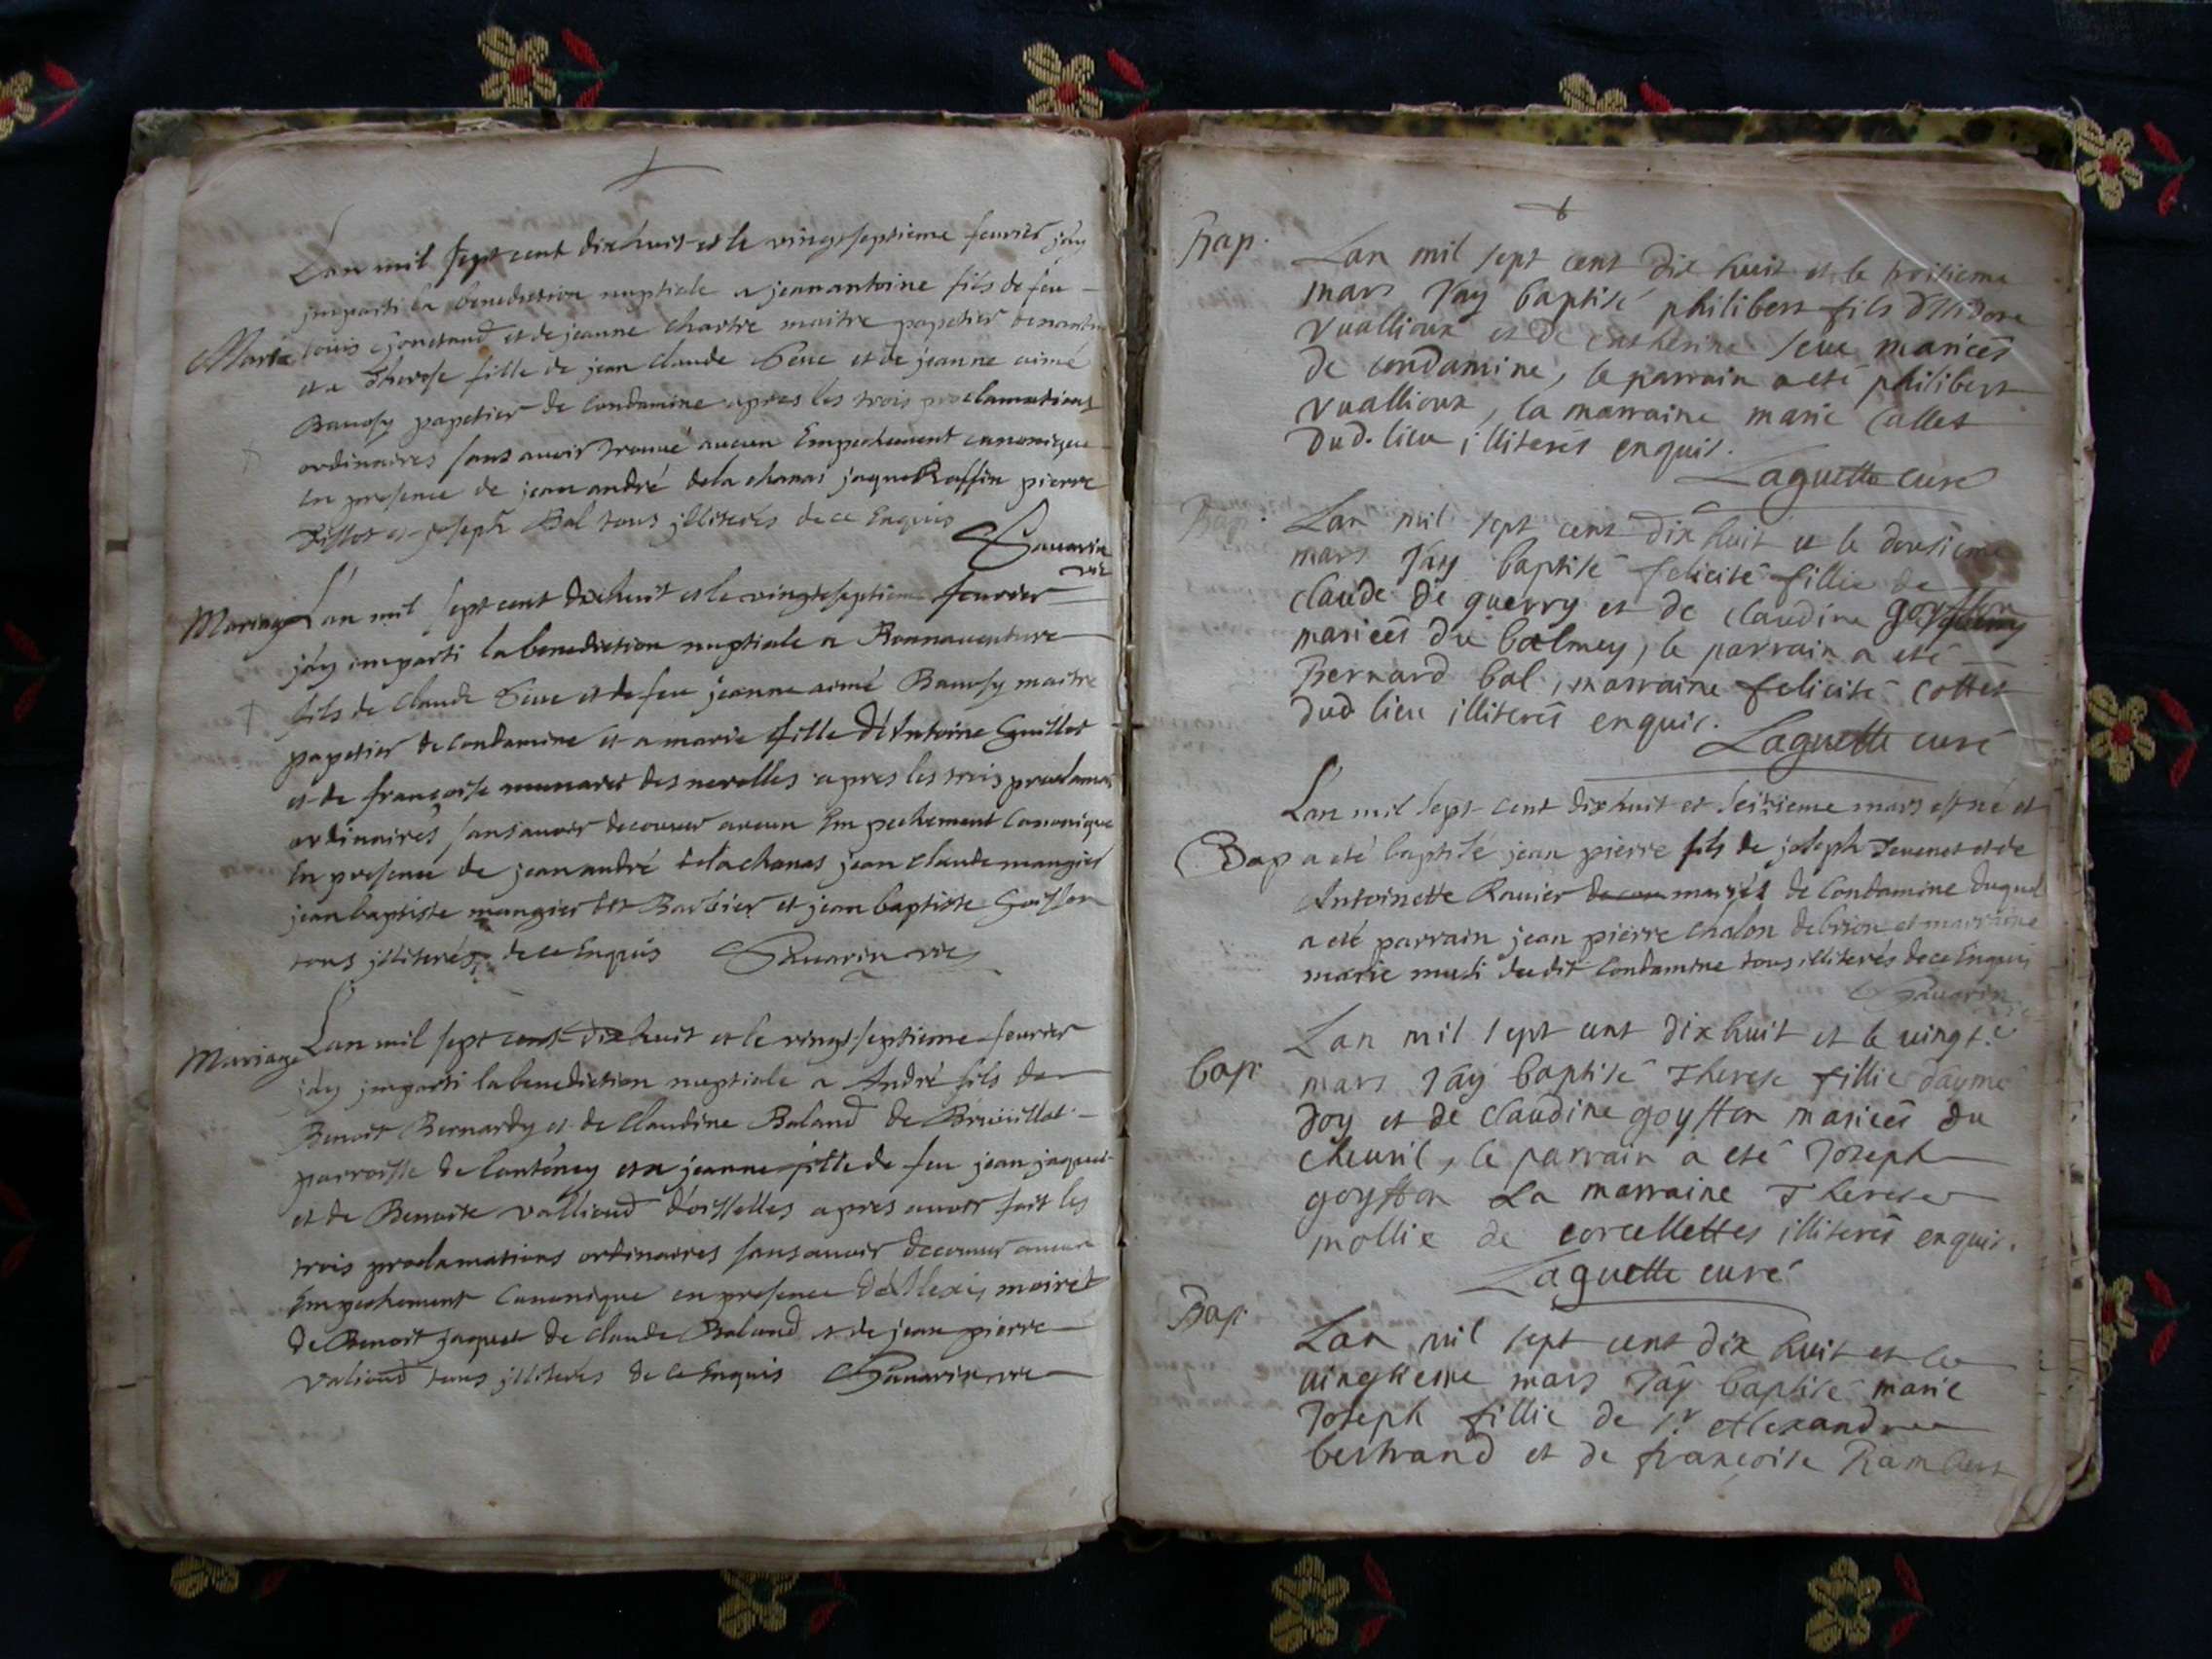 Lan mil sept cent dixhuit et le vingtseptieme feurier jáy
jmparti la benediction nuptiale a jeanantoine fils de feu
Maria louis et de jeanne chartre maitre papetier
et a Therese fille de jean claude Seue et de jeanne aimé
papetier de Condamine apres les trois proclamations
ordinaires sans auoir trouué aucun Empechement canonique
En presence de jean andré dela chanas jaque Roffin pierre
et joseph Bal tous jlliterés de ce Enquis
Sauarin
vic
Mariage Lan mil sept cent dixhuit et le vingtseptieme feurier
jáy imparti la benediction nuptiale a Bonnauenture
fils de Claude Seue et de feu jeanne aimé maitre
papetier de Condamine et a marie fille d'Antoine Guillot
et de françoise des nerolles apres les trois proclama
ordinaires sans auoir decouuer aucun Empechement Canonique
En presence de jean andré delachanas jean claude mangier
jean baptiste mangier Barbier et jean baptiste Goiffon
tous jlliterés de ce Enquis Sauarin vic
Mariage Lan mil sept cent dixhuit et le vingtseptieme feurier
jáy jmparti la benediction nuptiale a André fils de
Benoit Bernardy et de Claudine Baland de
parroisse de lanténey et a jeanne fille de feu jean jaques
et de Benoite valliend d'oisselles apres auoir fait les
trois proclamations ordinaires sans auoir decouuer aucun
Empechement Canonique en presence d'Alexis moiret
de Benoit jaquet de claude Baland et de jean pierre
valiend tous jlliterés de ce Enquis Sauarin vic
Bap. Lan mil sept cent dix huit et le troisieme
mars Jay baptisé philibert fils
vuallioux et de catherine seue mariées
de condamine, le parrain a eté philibert
vuallioux, la marraine marie Callet
dud. lieu illiterés enquis.
Laguette curé
Bap. Lan mil sept cent dix huit et le dousieme
mars Jay baptisé felicité fillie de
claude de guerry et de claudine goyffon
mariées du balmey, le parrain a eté
Bernard bal, marraine felicité cottet
dud lieu illiterés enquis.
Laguette curé
Lan mil sept cent dixhuit et seizieme mars est né et
Bap a eté baptisé jean pierre fils de joseph Teuenet et de
Antoinette Rauier mariés de Condamine duquel
a eté parrain jean pierre chalon de brion et marraine
marie dudit Condamine tous illiterés de ce Enquis
Sauarin
Lan mil sept cent dix huit et le vingt.e
bap. mars Jáy baptisé Therese fillie dáymé
Joy et de claudine goyffon mariées du
cheuril, le parrain a eté Joseph
goyffon La marraine Therese
mollie de corcellettes illiterés enquis.
Laguette curé
Bap. Lan mil sept cent dix huit et le
vingtieme mars Jáy baptisé marie
Joseph fillie de sr. Alexandre
bertrand et de françoise Rambert